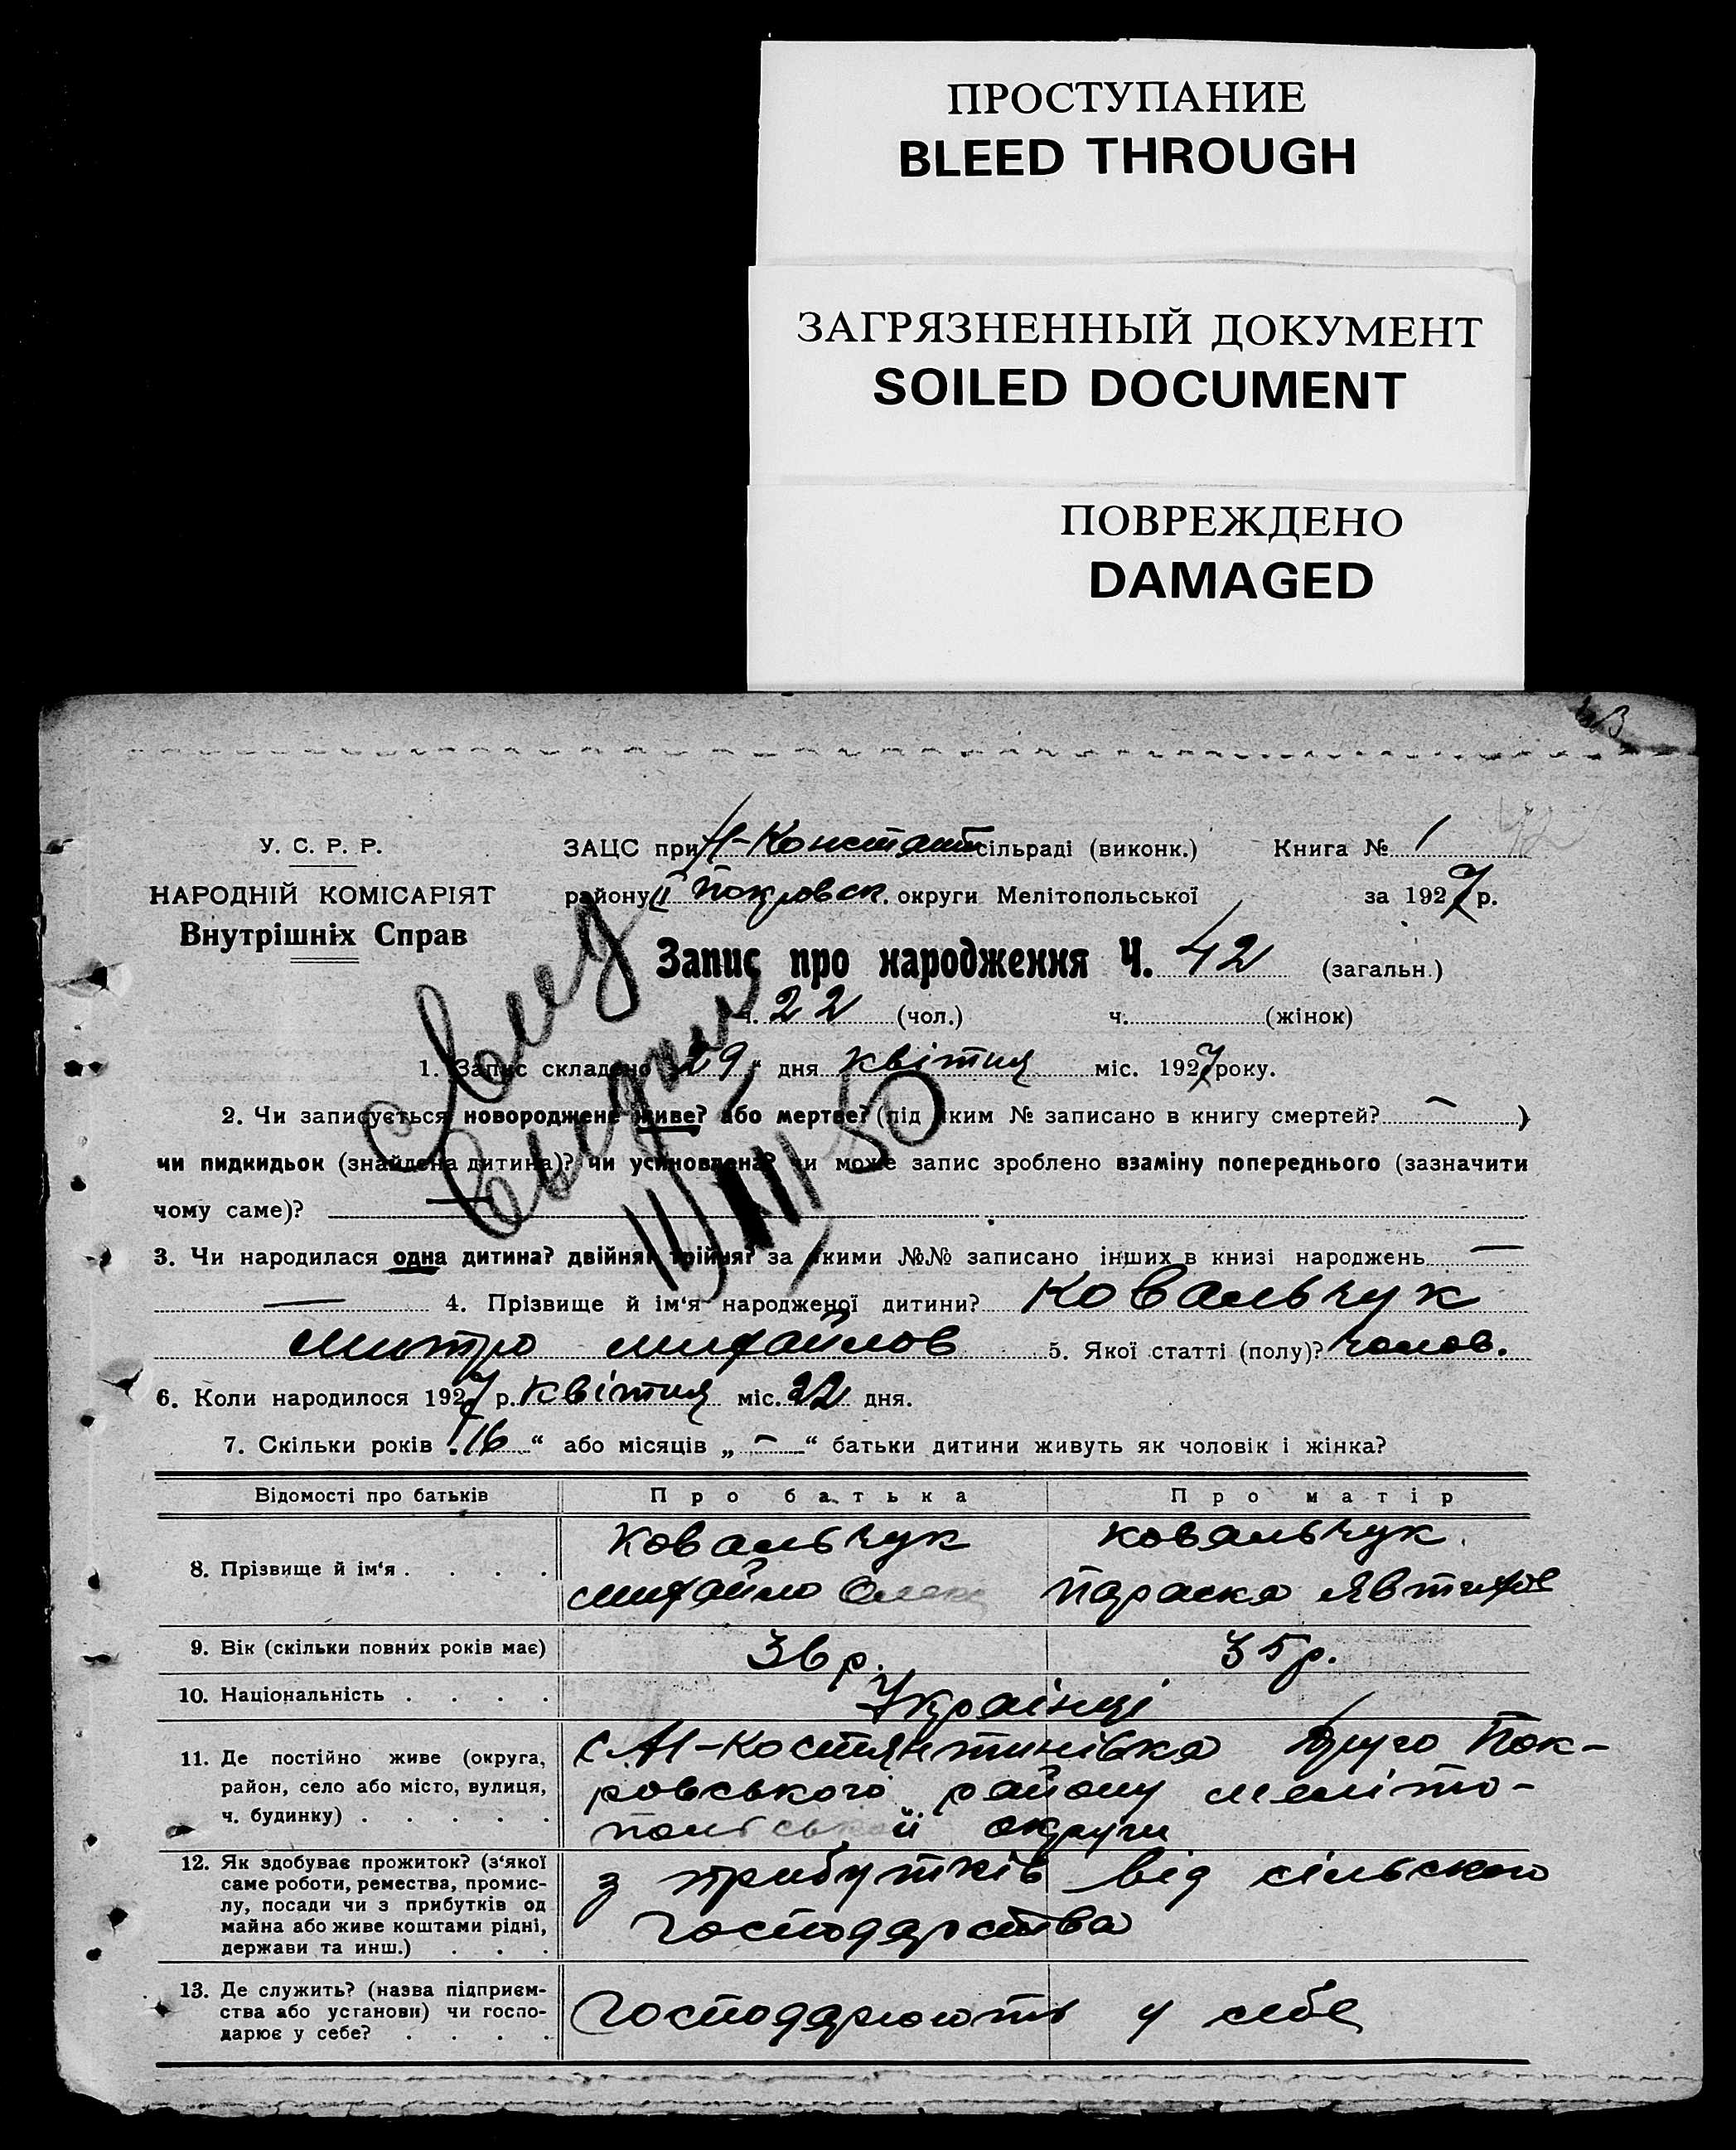 ПРОСТУПАНИЕ
BLEED THROUGH
ЗАГРЯЗНЕННЫЙ ДОКУМЕНТ
SOILED DOCUMENT
ПОВРЕЖДЕНО
DAMAGED
У. С. Р. Р.
НАРОДНІЙ КОМІСАРІЯТ
Внутрішніх Справ
ЗАЦС при Н-Констант сільраді (виконк.) Книга № 1
району ІІ Покровськ. округи Мелітопольської за 1927 р.
Запис про народження Ч. 42 (загальн.)
ч. 22 (чол.) ч. (жінок)
1. Запис складено „29“ дня квітня міс. 1927 року.
2. Чи записується новороджене живе? або мертве? (під яким № записано в книгу смертей? — )
чи пидкидьок (знайдена дитина)? чи усиновлена? чи може запис зроблено взаміну попереднього (зазначити
чому саме)?
3. Чи народилася одна дитина? двійня? трійня? за якими №№ записано інших в книзі народжень —
— 4. Прізвище й ім‘я народженої дитини? Ковальчук
Митро Михайлов 5. Якої статті (полу)? чолов.
6. Коли народилося 1927 р. квітня міс. 22 дня.
7. Скільки років „16“ або місяців „ — “ батьки дитини живуть як чоловік і жінка?
Відомості про батьків Про батька Про матір
8. Прізвище й ім‘я . . . . Ковальчук Ковальчук
Михайло Олекс Параска Явтихов
9. Вік (скільки повних років має) 36 р. 35 р.
10. Національність . . . . Українці
11. Де постійно живе (округа, район, село або місто, вулиця, ч. будинку) . . . . .
с. Н-Костянтинівка Друго Пок-
ровського району Меліто-
польської округи
12. Як здобуває прожиток? (з‘якої саме роботи, ремества, промислу, посади чи з прибутків од майна або живе коштами рідні, держави та инш.) . . .
з прибутків від сільского
господарства
13. Де служить? (назва підприємства або установи) чи господарює у себе? . . . .
Господарюють у себе